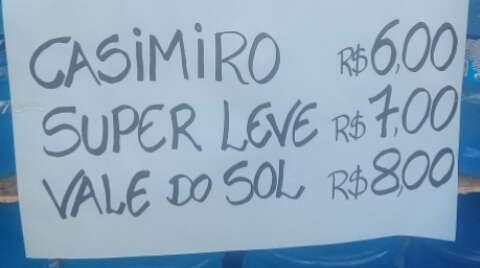 CASIMIRO R$6,00
SUPER LEVE R$7,00
VALE DO SOL R$8,00